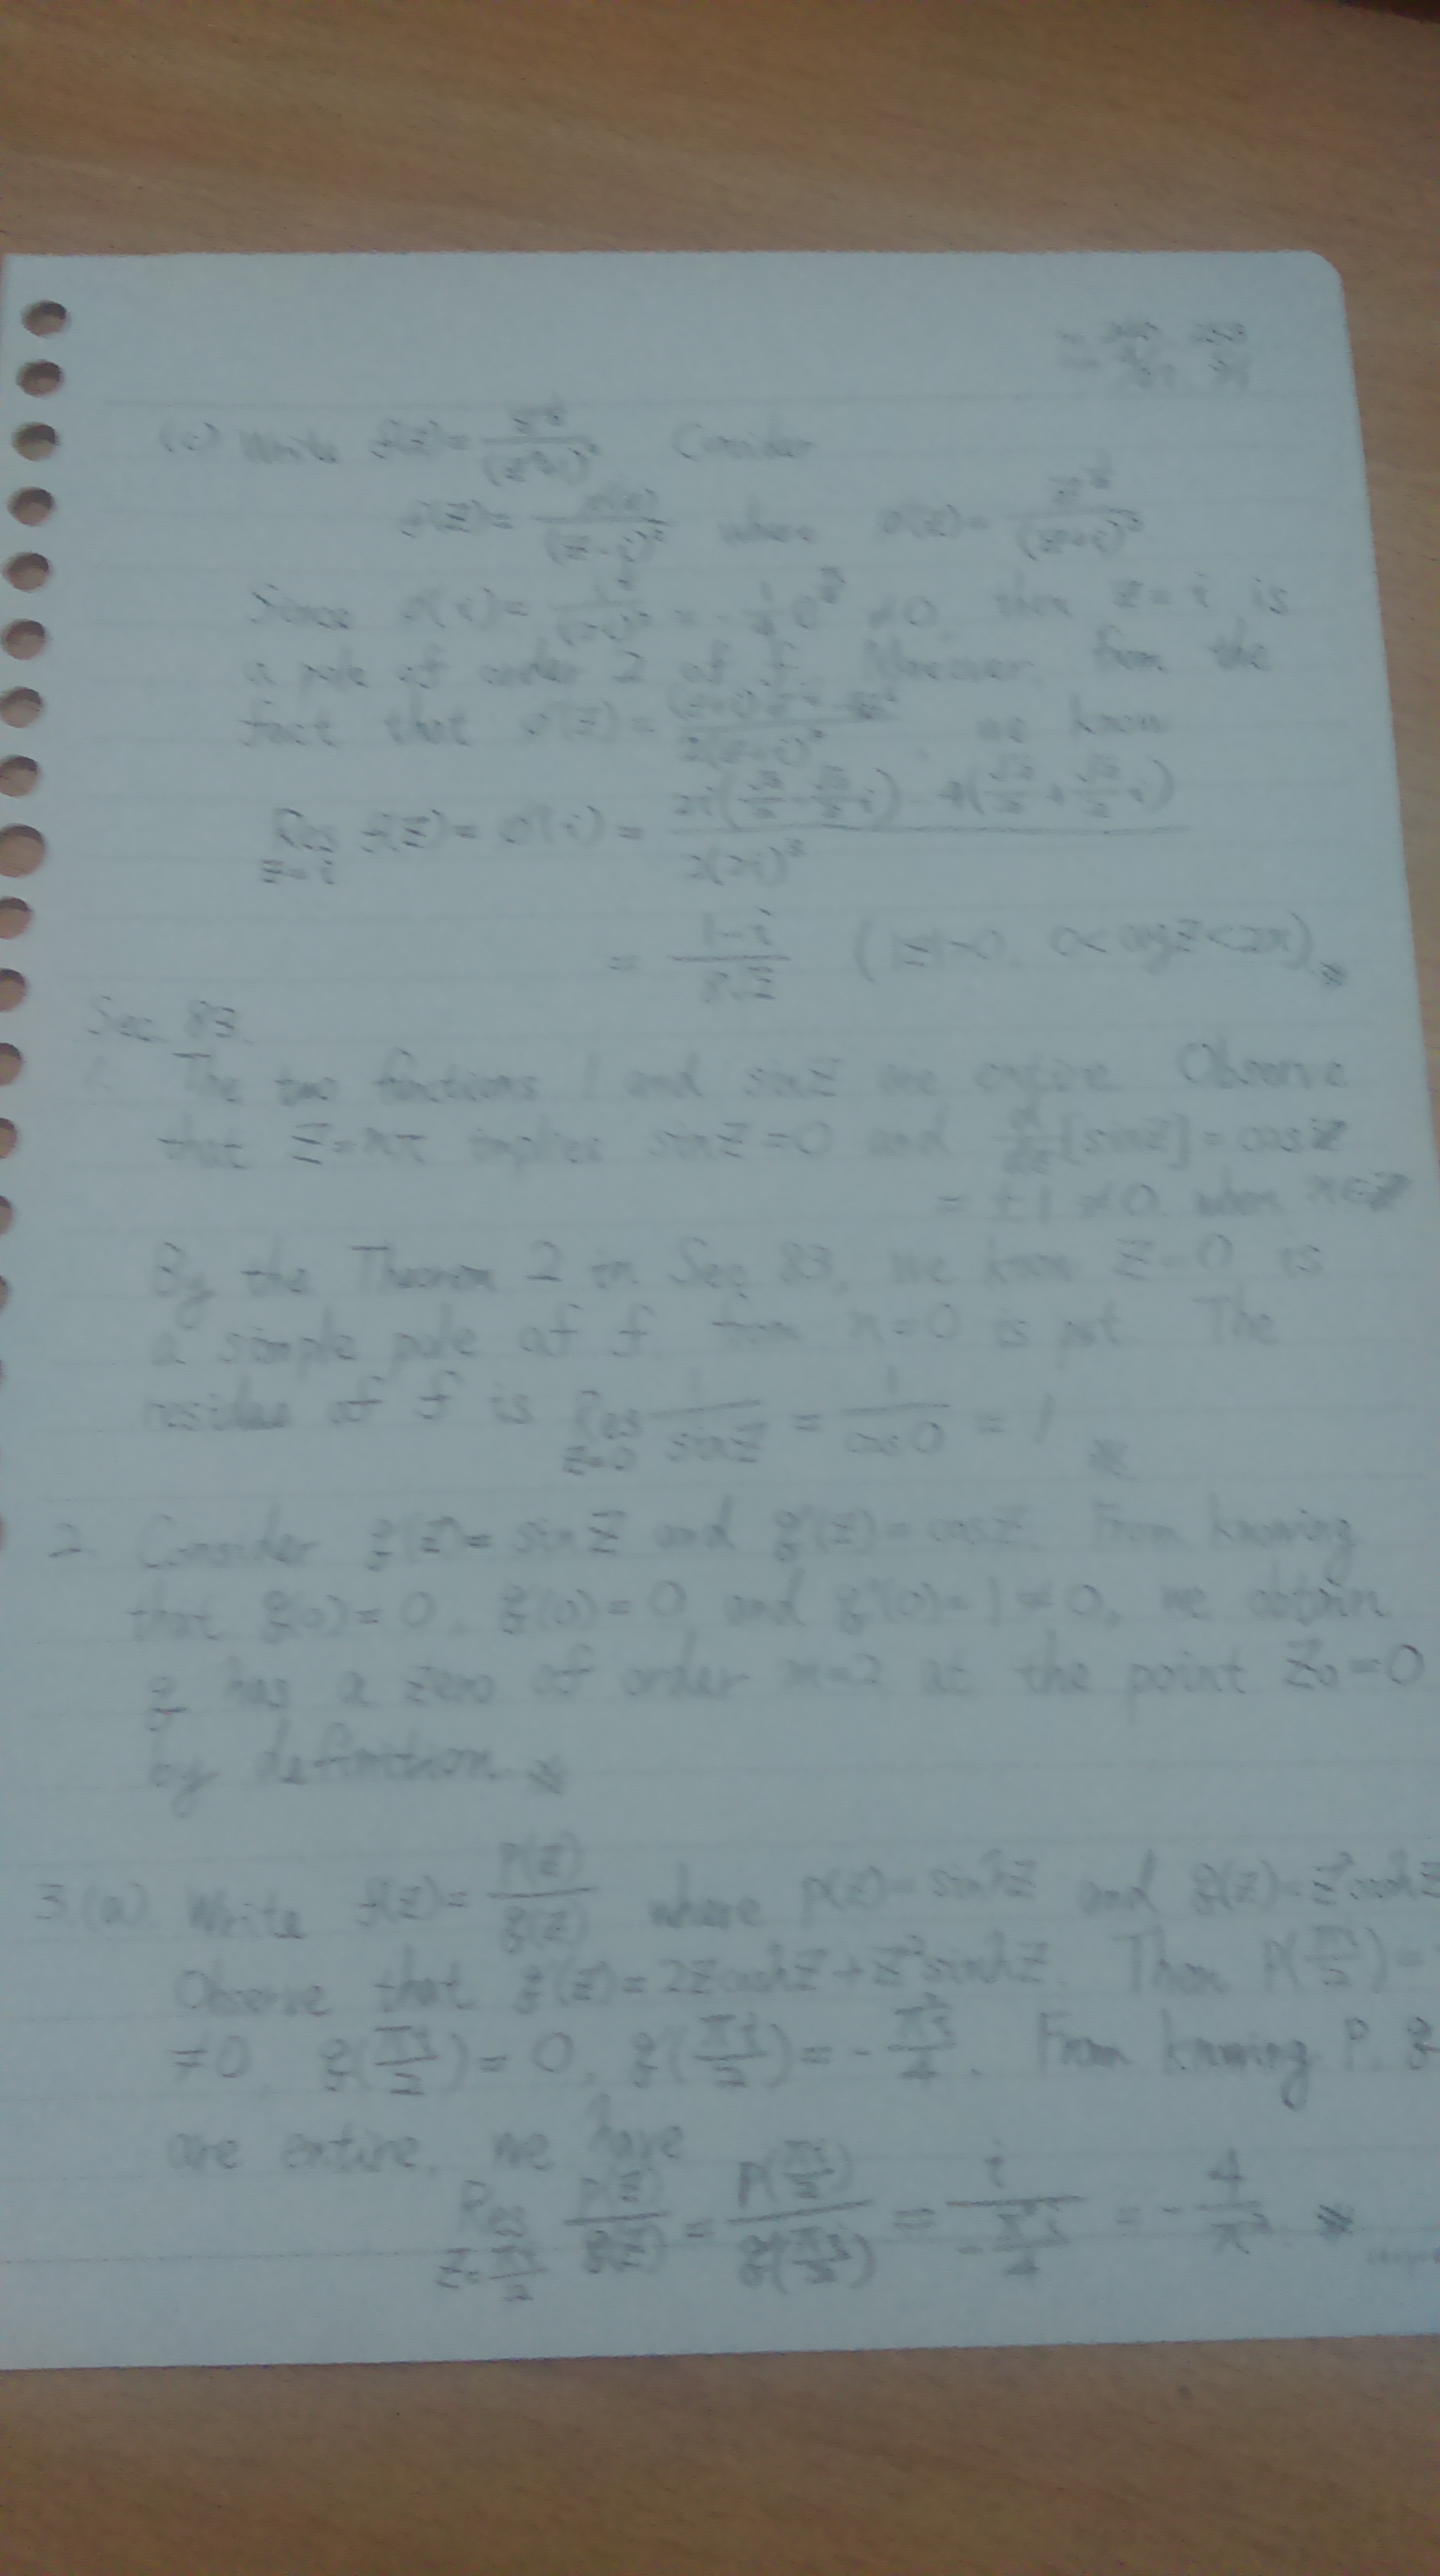 (c) Write f(z) = z^{1/2}/(z²+1)². Consider
f(z) = φ(z)/(z-i)² where φ(z) = z^{1/2}/(z+i)²
Since φ(i) = then z = i is
a pole of order 2 of f. Moreover, from the
fact that φ'(z) = we know
Res_{z=i} f(z) = φ'(i) =
= (1-i)/(8√2) (|z|>0, 0<arg z<2π)
Sec. 83.
1. The two functions 1 and sin z are entire. Observe
that z = nπ implies sin z = 0 and d/dz [sin z] = cos z
= ±1 ≠ 0 when n∈Z
By the Theorem 2 in Sec. 83, we know z = 0 is
a simple pole of f from n=0 is put. The
residue of f is Res_{z=0} 1/sin z = 1/cos 0 = 1
2. Consider q'(z) = sin z and q''(z) = cos z. From knowing
that q(0) = 0, q'(0) = 0 and q''(0) = 1 ≠ 0, we obtain
q has a zero of order m=2 at the point z₀ = 0
by definition.
3.(a). Write f(z) = p(z)/q(z) where p(z) = sinh z and q(z) = z² cosh z
Observe that q'(z) = 2z cosh z + z² sinh z. Then p(πi/2) =
≠ 0, q(πi/2) = 0, q'(πi/2) = -π²i/4. From knowing p, q
are entire, we have
Res_{z=πi/2} p(z)/q(z) = p(πi/2)/q'(πi/2) = i/(-π²i/4) = -4/π²